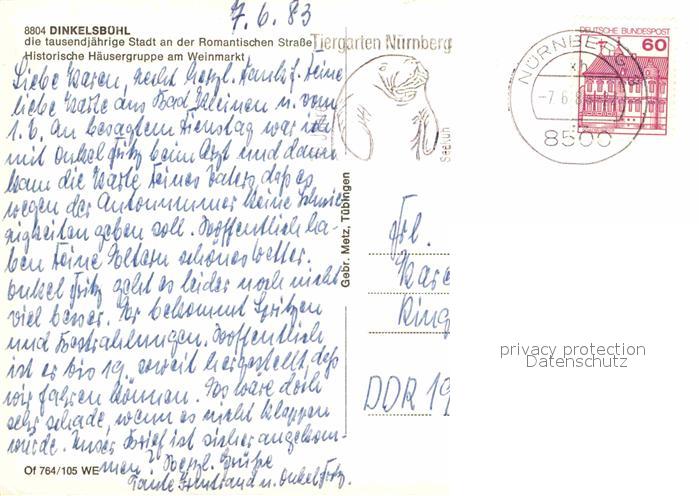 7.6.83
8804 DINKELSBÜHL
die tausendjährige Stadt an der Romantischen Straße
Historische Häusergruppe am Weinmarkt
Liebe Karen, recht herzl. Dank f. Deine
liebe Karte aus Bad Kleinen u. vom
1.6. An besagtem Dienstag war ich
mit Onkel Fritz beim Arzt und dann
kam die Karte Deines Vaters, daß es
wegen der Autonummer kleine Schwie-
rigkeiten geben soll. Hoffentlich ha-
ben Deine Eltern schönes Wetter.
Onkel Fritz geht es leider noch nicht
viel besser. Er bekommt Spritzen
und Bestrahlungen. Hoffentlich
ist er bis 19. soweit hergestellt, daß
wir fahren können. Es wäre doch
sehr schade, wenn es nicht klappen
würde. Unser Brief ist sicher angekom-
men? Herzl. Grüße
Tante u. Onkel Fritz.
Of 764/105 WE
Gebr. Metz, Tübingen
Tiergarten Nürnberg
Seekuh
NÜRNBERG
-7.6.8
8500
DEUTSCHE BUNDESPOST
60
Frl.
Kare
Ring
DDR 19
privacy protection
Datenschutz